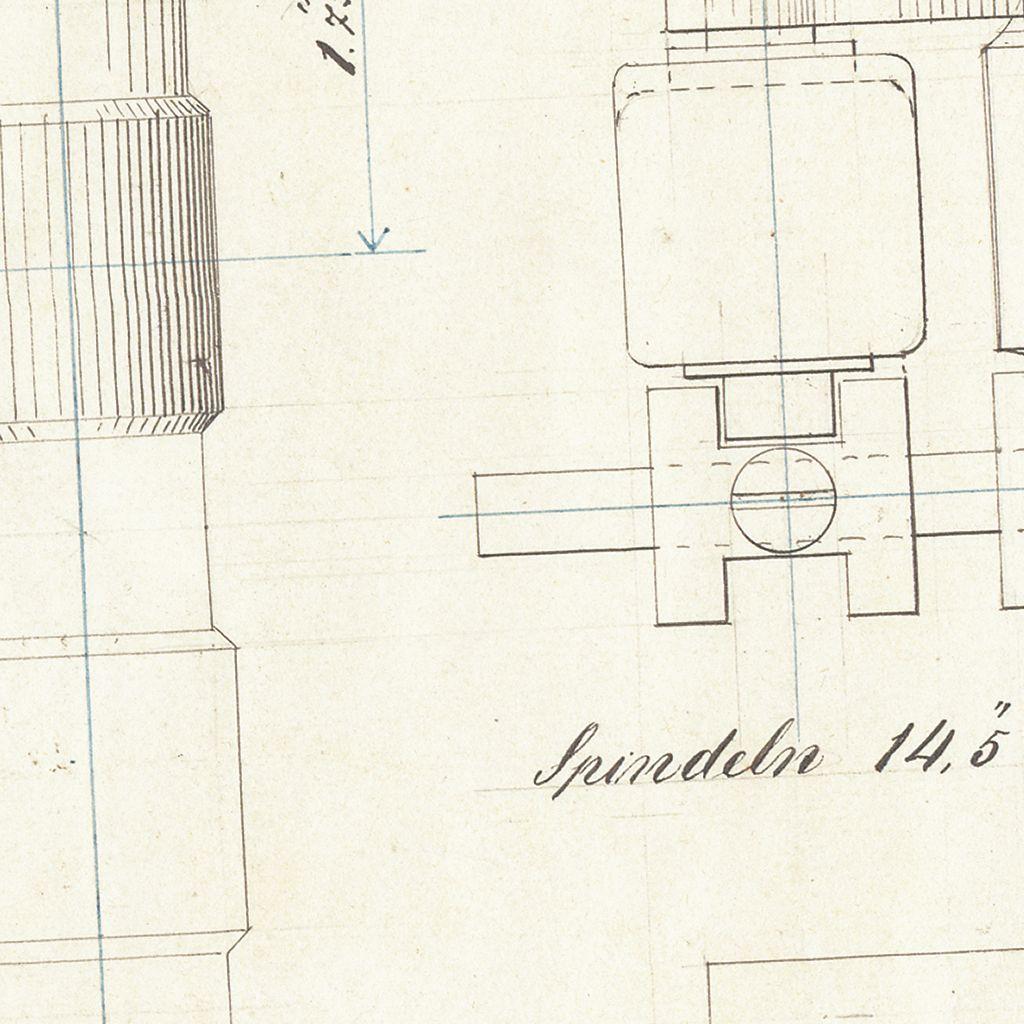 1.7
Spindeln 14,5"